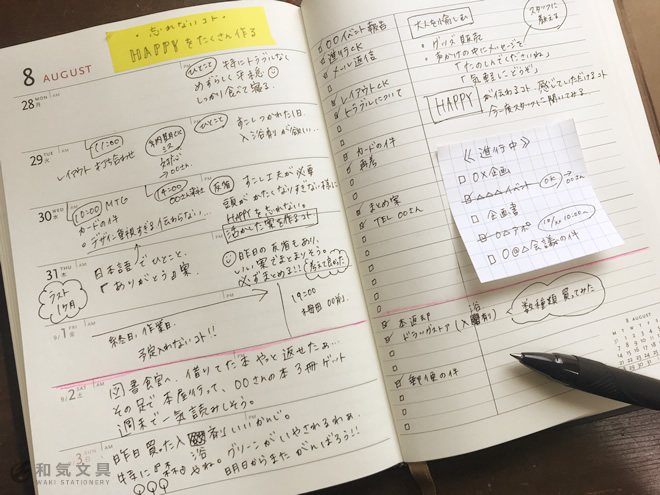 ・忘れないコト
HAPPYをたくさん作る
8 AUGUST
28 MON 月
ひとこと 特にトラブルなく
めずらしく平穏
しっかり食べて寝る。
29 TUE 火
11:00
レイアウト打ち合わせ
ひとこと すこしつかれた1日。
入浴剤が欲しい...
30 WED 水
10:00 MTG
カードの件
・デザイン重視すぎる伝わらない...
14:00
〇〇さん来社
反省 すこし工夫が必要
頭がかたくなりすぎない様に
HAPPYを忘れない。
活かした案を作るコト
31 THU 木
日本語でひとこと。
『ありがとう』案。
昨日の反省もあり、
いい案でまとまりそう。
必ずまとめる!!
ラスト
1ヶ月
9/1 FRI 金
終日、作業日。
予定入れないコト!!
19:00
9/2 SAT 土
図書館へ、借りてた本やっと返せたぁ...
その足で本屋行って、〇〇さんの本3冊ゲット
週末で一気読みしそう。
3 SUN
昨日買った入浴剤いいかんじ。
特に『森』やね。グリーンがいやされるわぁ。
明日からまたがんばろう!!
和気文具
WAKI STATIONERY
〇〇イベント報告
進行CK
メール返信
レイアウトCK
トラブルについて
カードの件
再考
まとめ案
TEL 〇〇さん
本返却
ドラッグストア(入浴剤)
数種類買ってみた
郵便の件
スタッフに
教える
・グッズ販売
・声かけの中にメッセージを
「たのしんでくださいね」
「気軽にどうぞ」
HAPPYが伝わるコト、感じていただけるコト
今一度スタッフに聞いてみる。
《進行中》
〇×企画
△△△イベント
OK
→〇〇さん
企画書
〇△アポ
10/xx 10:00〜
〇@△会議の件
8 AUGUST